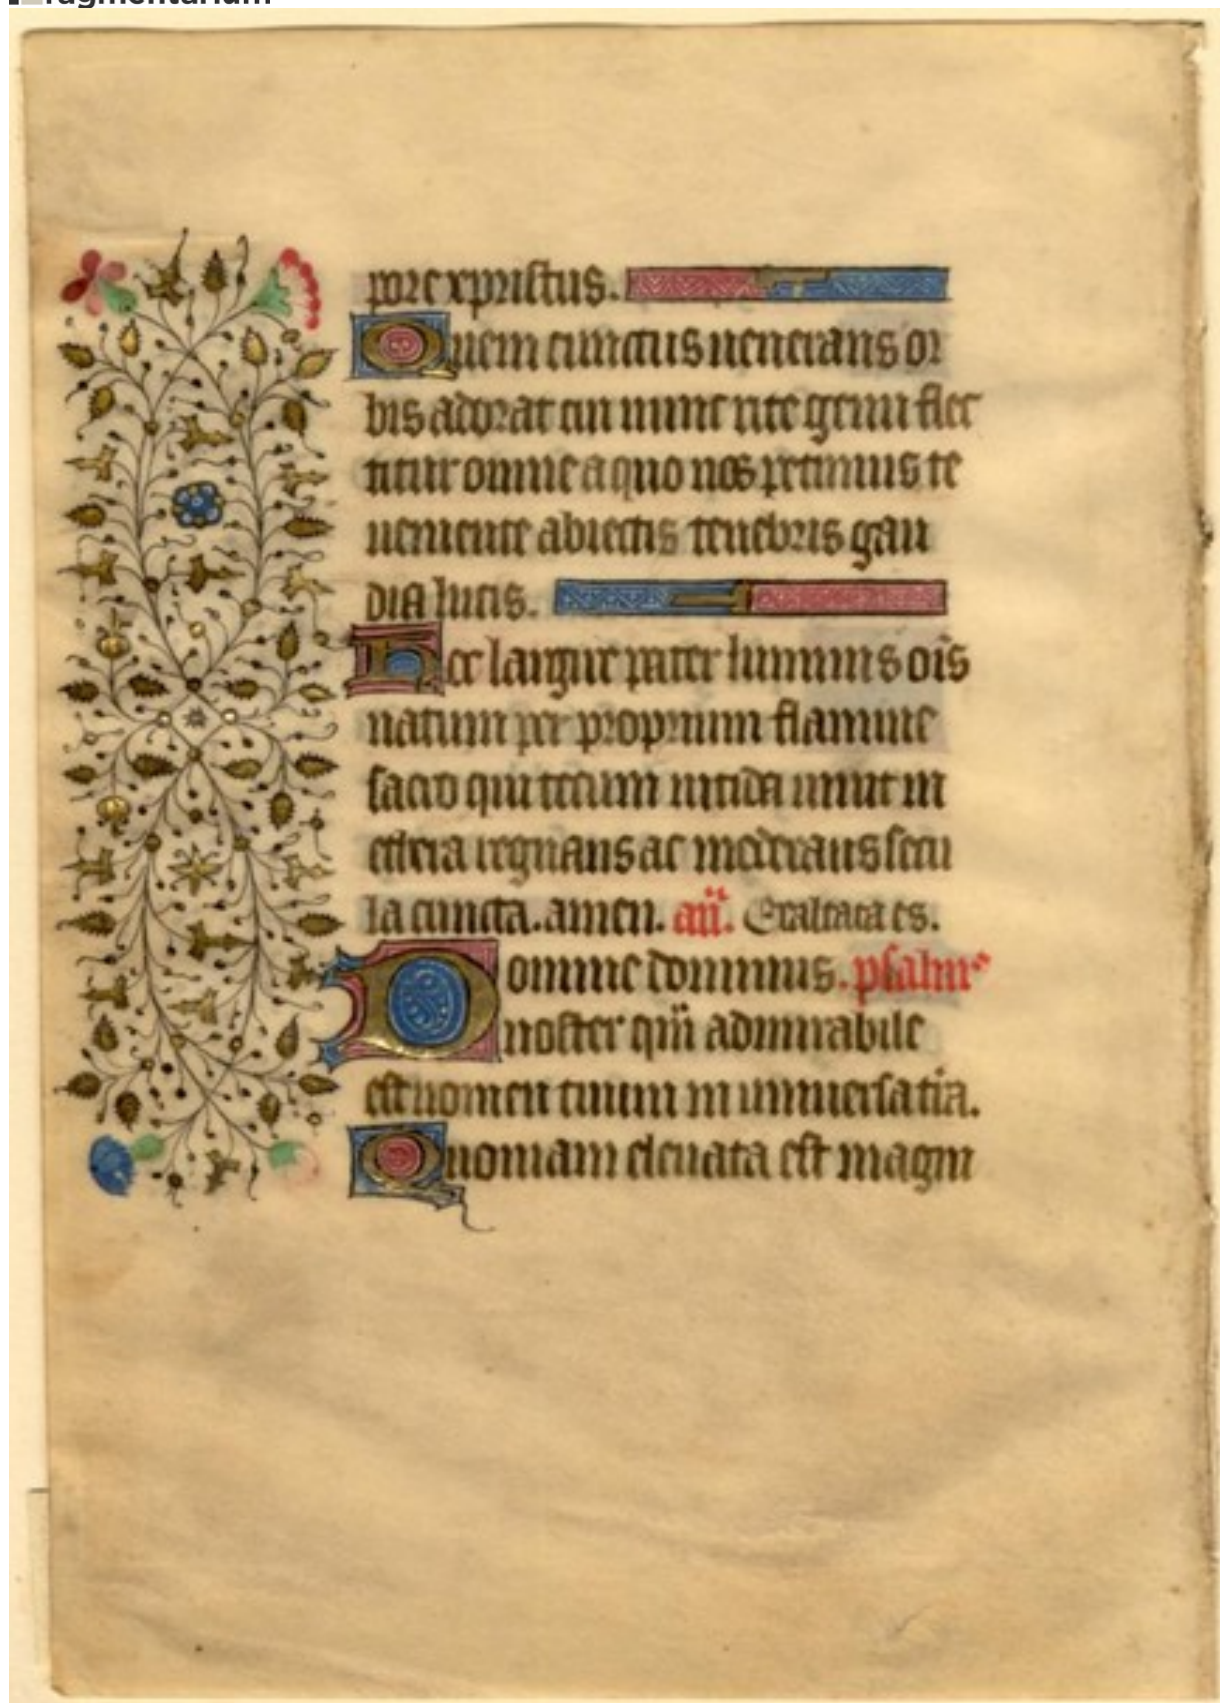 ragmentarium
pore xpristus.
Quem cunctus uenerans or
bis adorat cui nunc rite genu flec
titur omne a quo nos petimus te
ueniente abiectis tenebris gau
dia lucis.
Hec largire pater luminis oīs
natum per proprium flamine
sacro qui tecum nitida uiuit in
ethera regnans ac moderans secu
la cuncta. amen. an̄. Exaltata es.
Domine dominus. psalmꝰ
noster qm̄ admirabile
est nomen tuum in uniuersa tr̄a.
Quoniam eleuata est magni